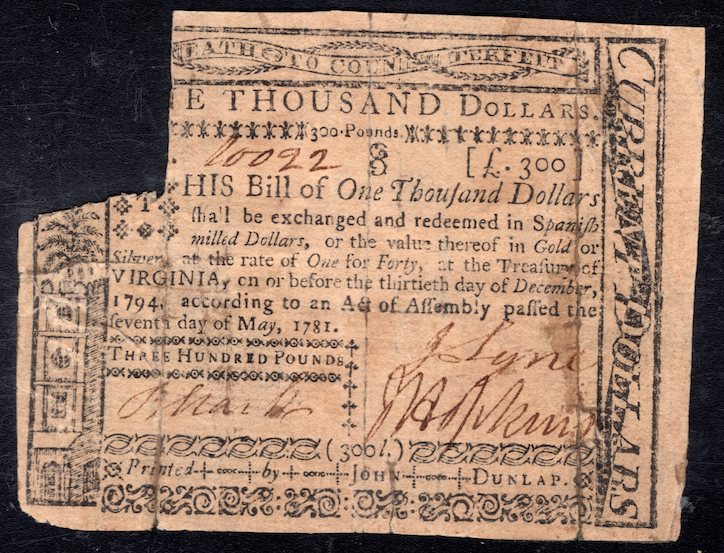 EATH TO COUNTERFEIT
E THOUSAND DOLLARS.
(300 Pounds.)
10022
[£. 300]
HIS Bill of One Thouſand Dollars
ſhall be exchanged and redeemed in Spaniſh
milled Dollars, or the value thereof in Gold or
Silver, at the rate of One for Forty, at the Treaſury of
VIRGINIA, on or before the thirtieth day of December,
1794, according to an Act of Aſſembly paſſed the
ſeventh day of May, 1781.
THREE HUNDRED POUNDS
J Lyne
J Hopkins
(300l.)
Printed by JOHN DUNLAP.
CURRENT DOLLARS